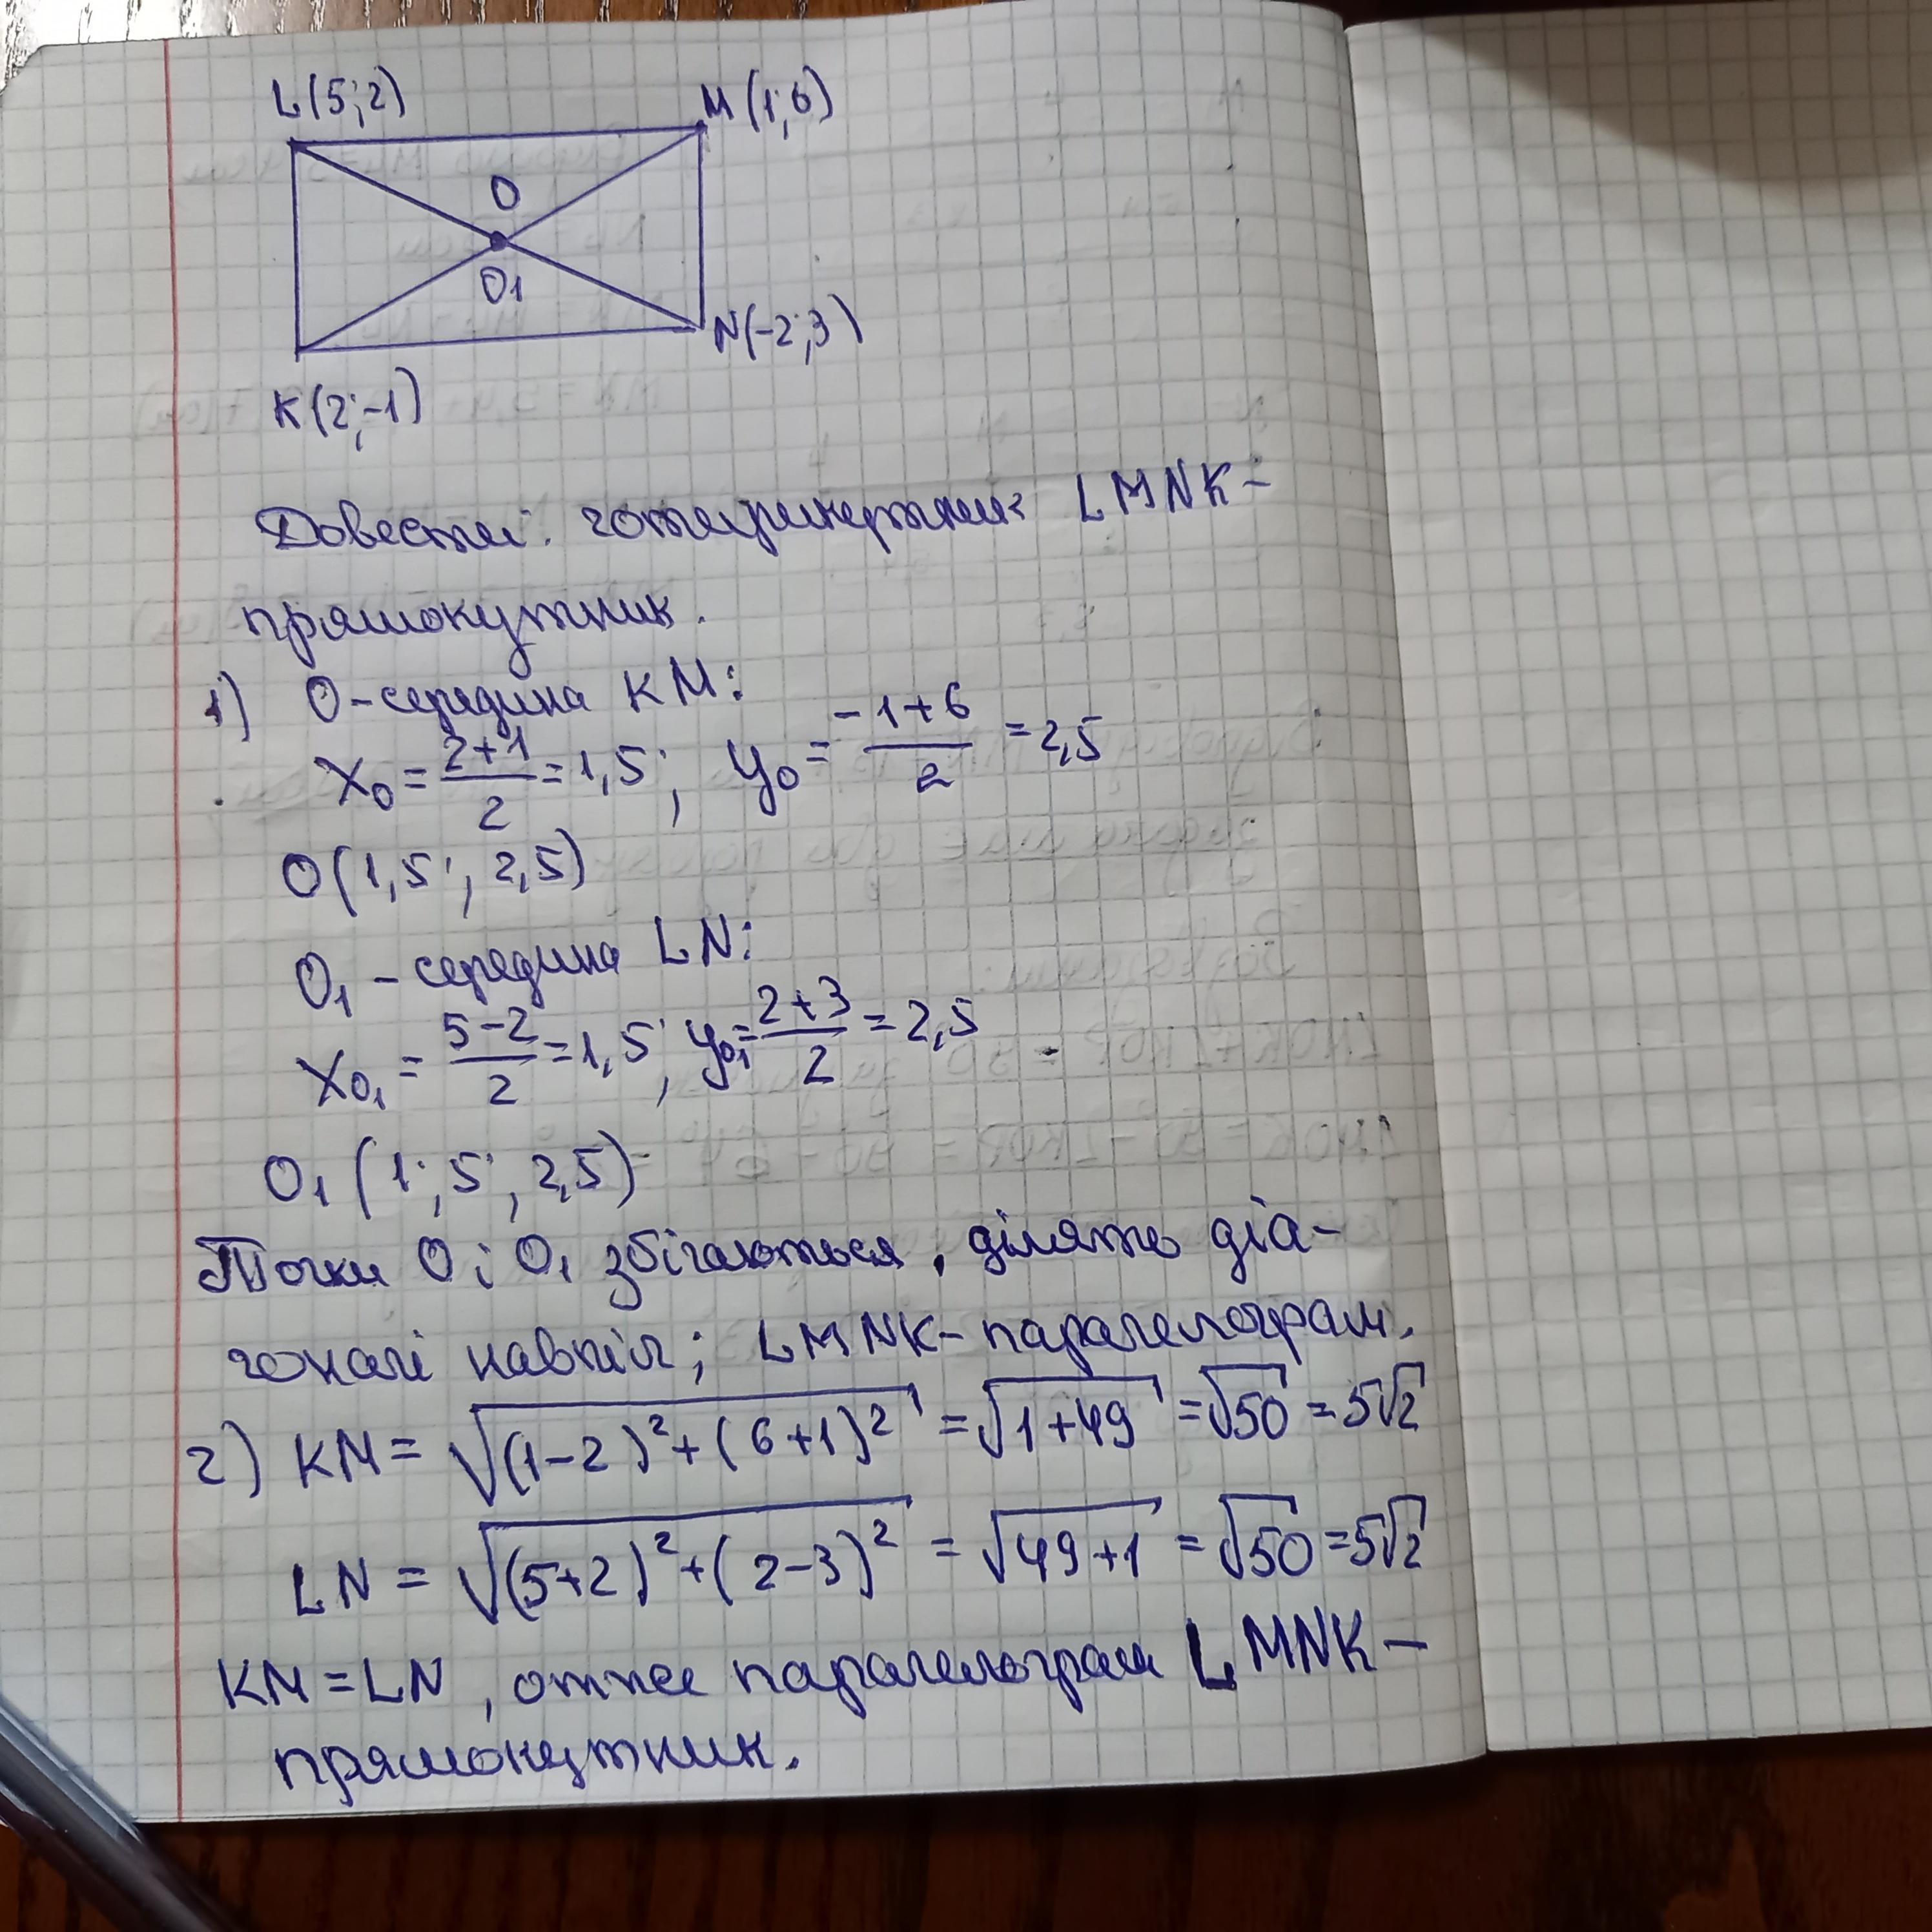 L(5;2)
M(1;6)
O
O₁
N(-2;3)
K(2;-1)
Довести: чотирикутник LMNK-
прямокутник.
1) O-середина KM:
X₀ = (2+1)/2 = 1,5; y₀ = (-1+6)/2 = 2,5
O(1,5; 2,5)
O₁ - середина LN:
X₀₁ = (5-2)/2 = 1,5; y₀₁ = (2+3)/2 = 2,5
O₁ (1;5; 2,5)
Точки O і O₁ збігаються, ділять діа-
гоналі навпіл; LMNK-паралелограм.
2) KM = √((1-2)²+(6+1)²) = √(1+49) = √50 = 5√2
LN = √((5+2)²+(2-3)²) = √(49+1) = √50 = 5√2
KM=LN, отже паралелограм LMNK-
прямокутник.